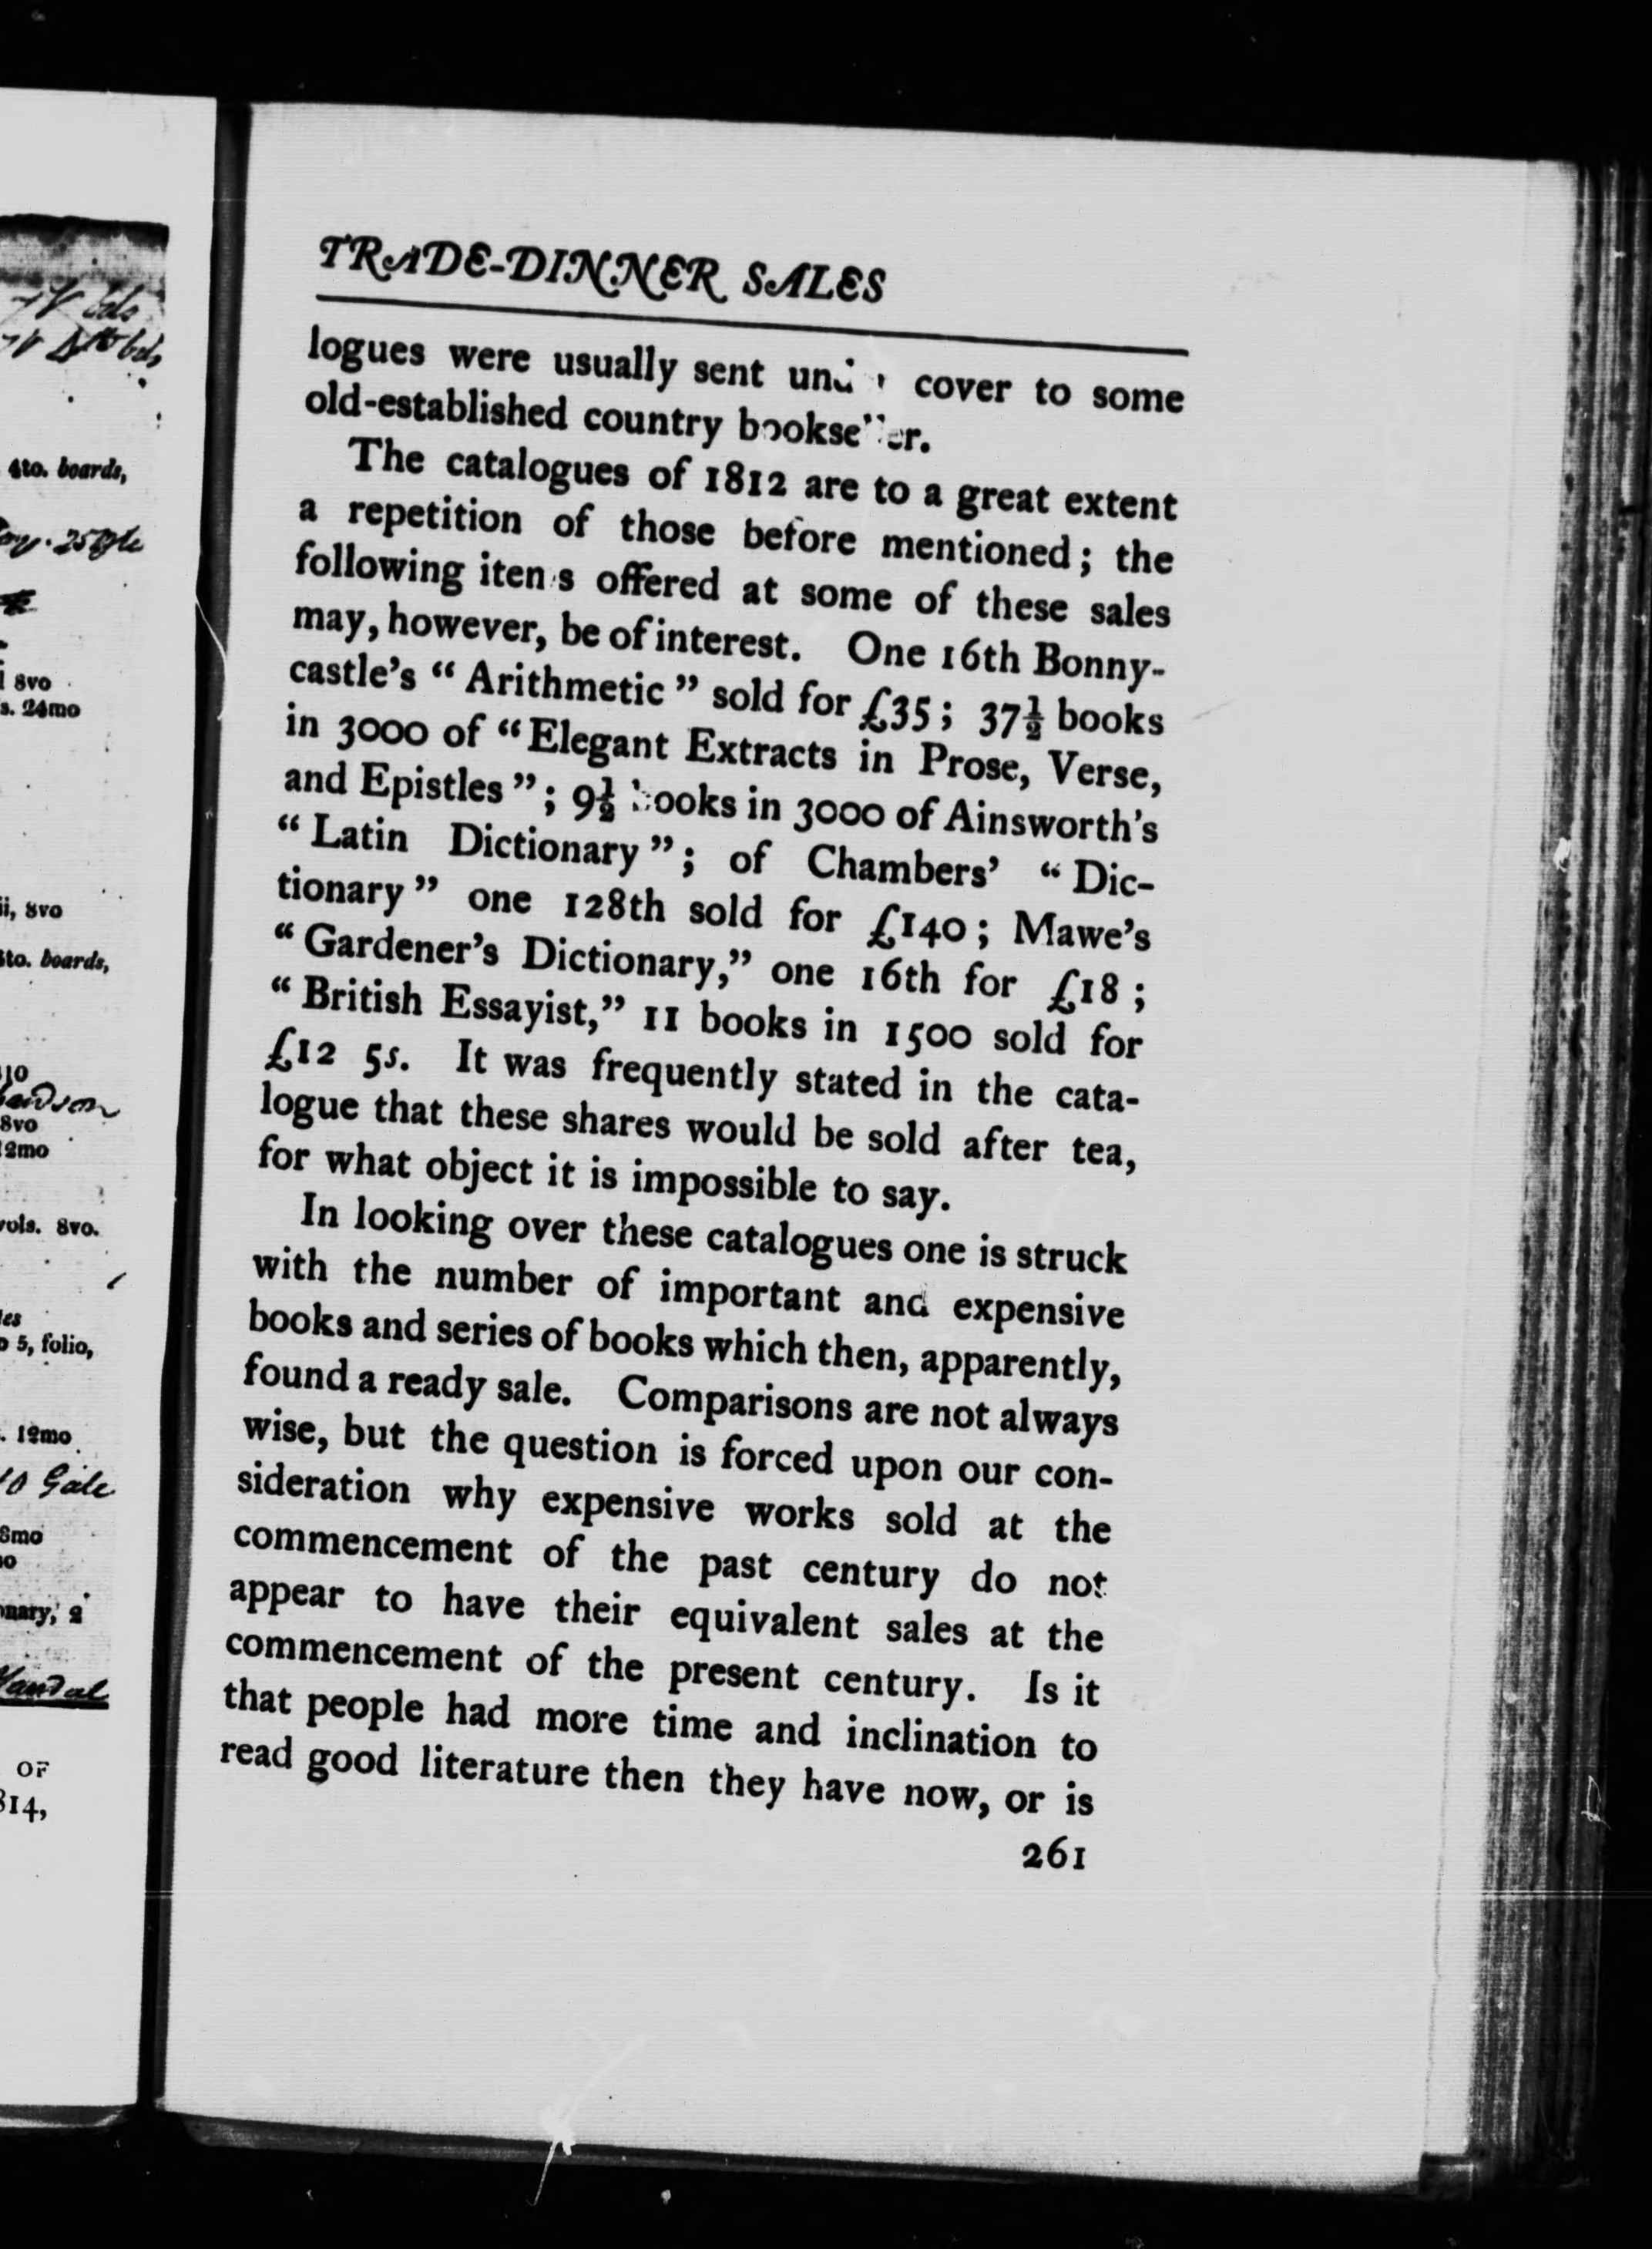 4to. boards,
8vo
s. 24mo
8vo
boards,
8vo
12mo
vols. 8vo.
5, folio,
12mo
Gale
OF
TRADE-DINNER SALES
logues were usually sent cover to some
old-established country bookseller.
The catalogues of 1812 are to a great extent
a repetition of those before mentioned; the
following items offered at some of these sales
may, however, be of interest. One 16th Bonny-
castle's "Arithmetic" sold for £35; 37½ books
in 3000 of "Elegant Extracts in Prose, Verse,
and Epistles"; 9½ books in 3000 of Ainsworth's
"Latin Dictionary"; of Chambers' "Dic-
tionary" one 128th sold for £140; Mawe's
"Gardener's Dictionary," one 16th for £18;
"British Essayist," 11 books in 1500 sold for
£12 5s. It was frequently stated in the cata-
logue that these shares would be sold after tea,
for what object it is impossible to say.
In looking over these catalogues one is struck
with the number of important and expensive
books and series of books which then, apparently,
found a ready sale. Comparisons are not always
wise, but the question is forced upon our con-
sideration why expensive works sold at the
commencement of the past century do not
appear to have their equivalent sales at the
commencement of the present century. Is it
that people had more time and inclination to
read good literature then they have now, or is
261